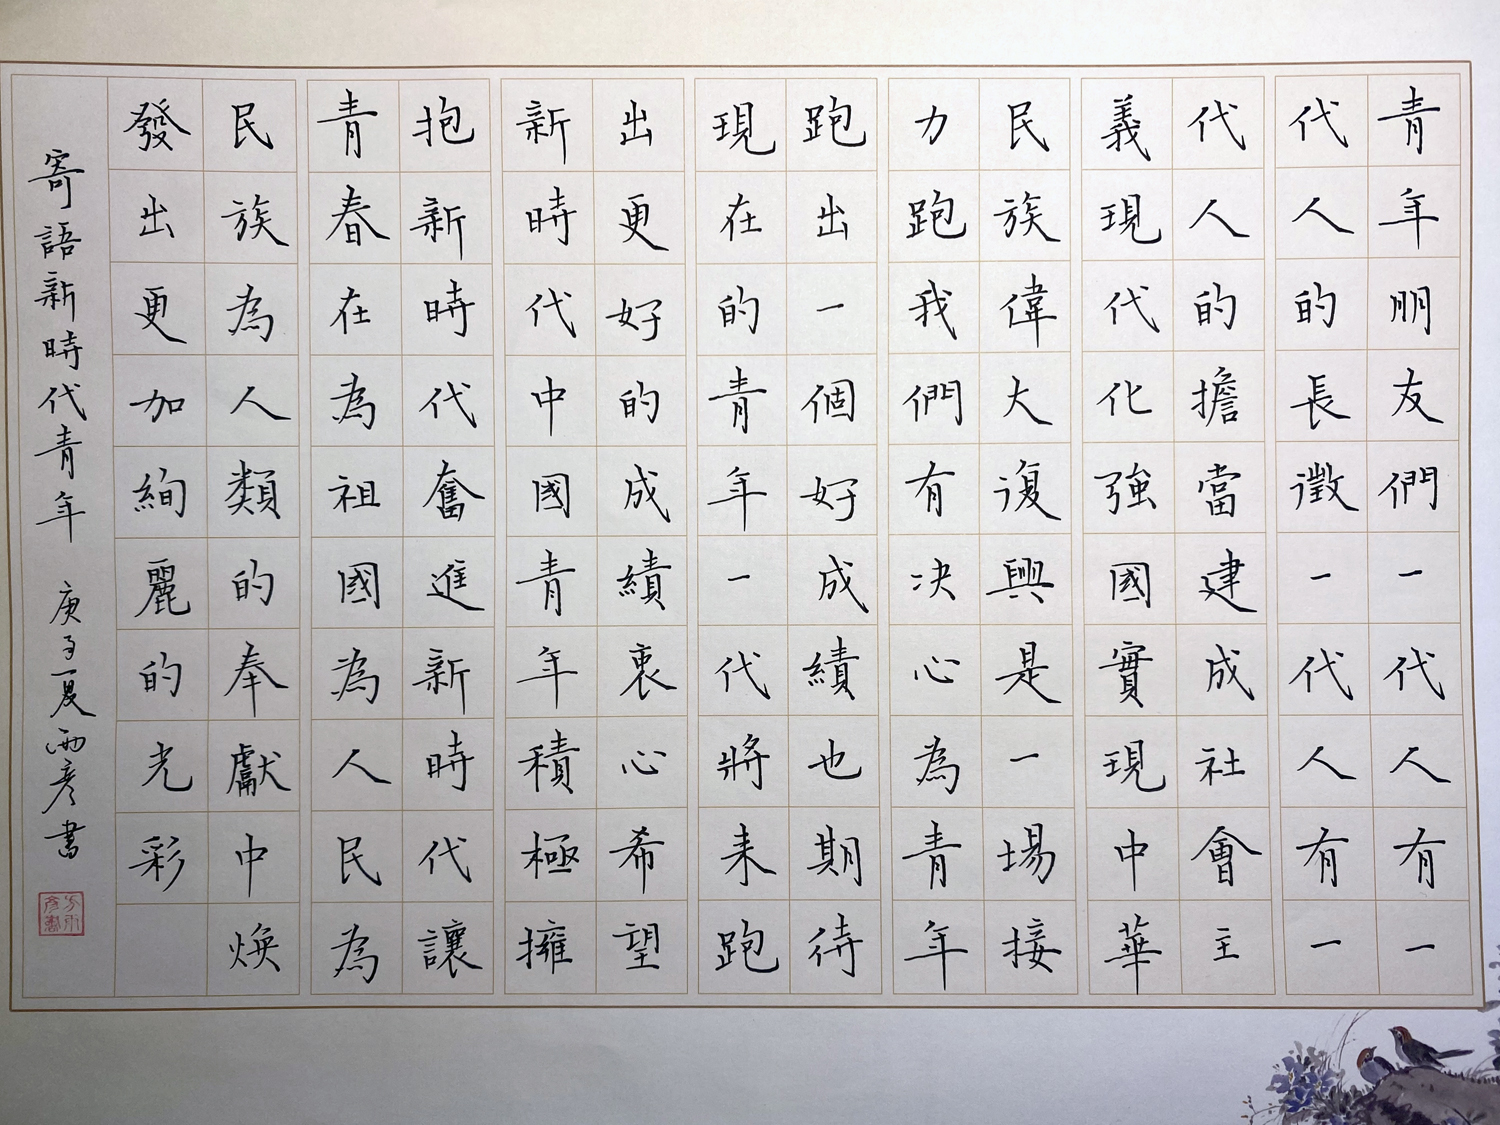 青年朋友們一代人有一
代人的長徵一代人有一
代人的擔當建成社會主
義現代化強國實現中華
民族偉大復興是一場接
力跑我們有决心為青年
跑出一個好成績也期待
現在的青年一代將來跑
出更好的成績衷心希望
新時代中國青年積極擁
抱新時代奮進新時代讓
青春在為祖國為人民為
民族為人類的奉獻中煥
發出更加絢麗的光彩
寄語新時代青年 庚子夏雨彥書